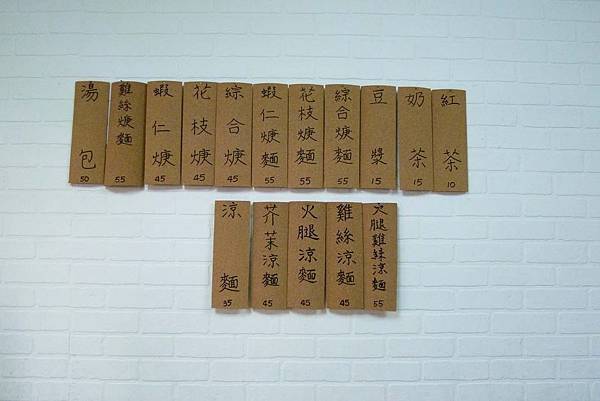 湯包 50
雞絲焿麵 55
蝦仁焿 45
花枝焿 45
綜合焿 45
蝦仁焿麵 55
花枝焿麵 55
綜合焿麵 55
豆漿 15
奶茶 15
紅茶 10
涼麵 35
芥茉涼麵 45
火腿涼麵 45
雞絲涼麵 45
火腿雞絲涼麵 55